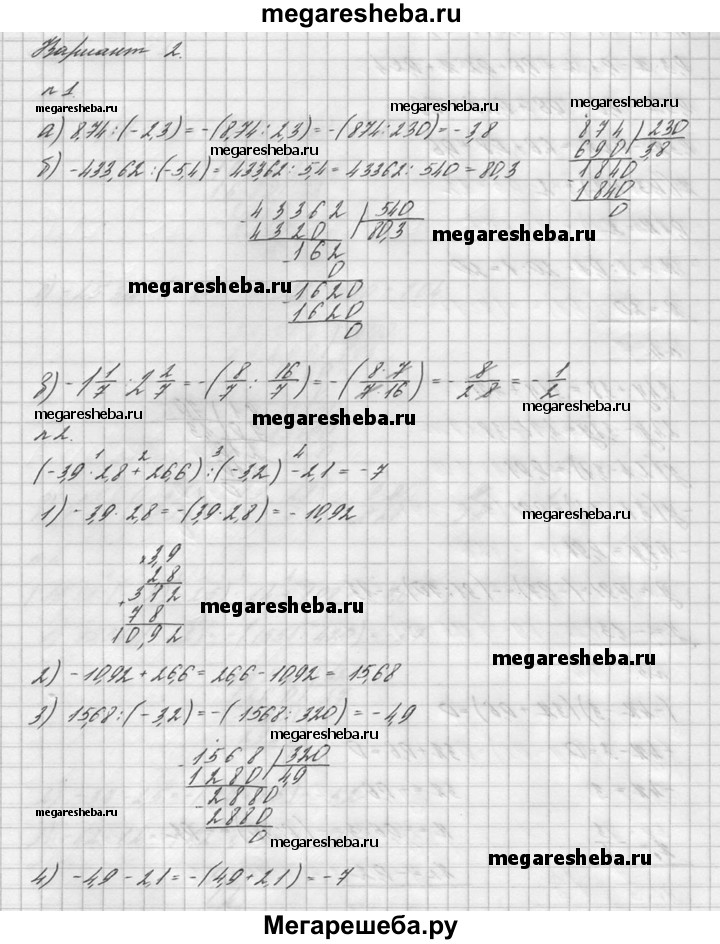 megaresheba.ru
Вариант 2.
№1.
megaresheba.ru
megaresheba.ru
megaresheba.ru
а) 8,74 : (-2,3) = -(8,74 : 2,3) = -(874 : 230) = -3,8
874 | 230
690 | 3,8
1840
1840
0
megaresheba.ru
б) -433,62 : (-5,4) = 433,62 : 5,4 = 43362 : 540 = 80,3
43362 | 540
4320 | 80,3
162
0
1620
1620
0
megaresheba.ru
megaresheba.ru
в) -1 1/7 : 2 2/7 = -(8/7 : 16/7) = -(8·7/7·16) = -8/2·8 = -1/2
megaresheba.ru
megaresheba.ru
№2.
1 2 3 4
(-3,9 · 2,8 + 26,6) : (-3,2) - 2,1 = -7
1) -3,9 · 2,8 = -(3,9 · 2,8) = -10,92
megaresheba.ru
× 3,9
2,8
+ 312
78
10,92
megaresheba.ru
megaresheba.ru
2) -10,92 + 26,6 = 26,6 - 10,92 = 15,68
3) 15,68 : (-3,2) = -(1568 : 320) = -4,9
megaresheba.ru
1568 | 320
1280 | 4,9
2880
2880
0
megaresheba.ru
megaresheba.ru
megaresheba.ru
4) -4,9 - 2,1 = -(4,9 + 2,1) = -7
Мегарешеба.ру